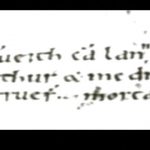 ueith cā lan
thur & medr
ruer̄ morta